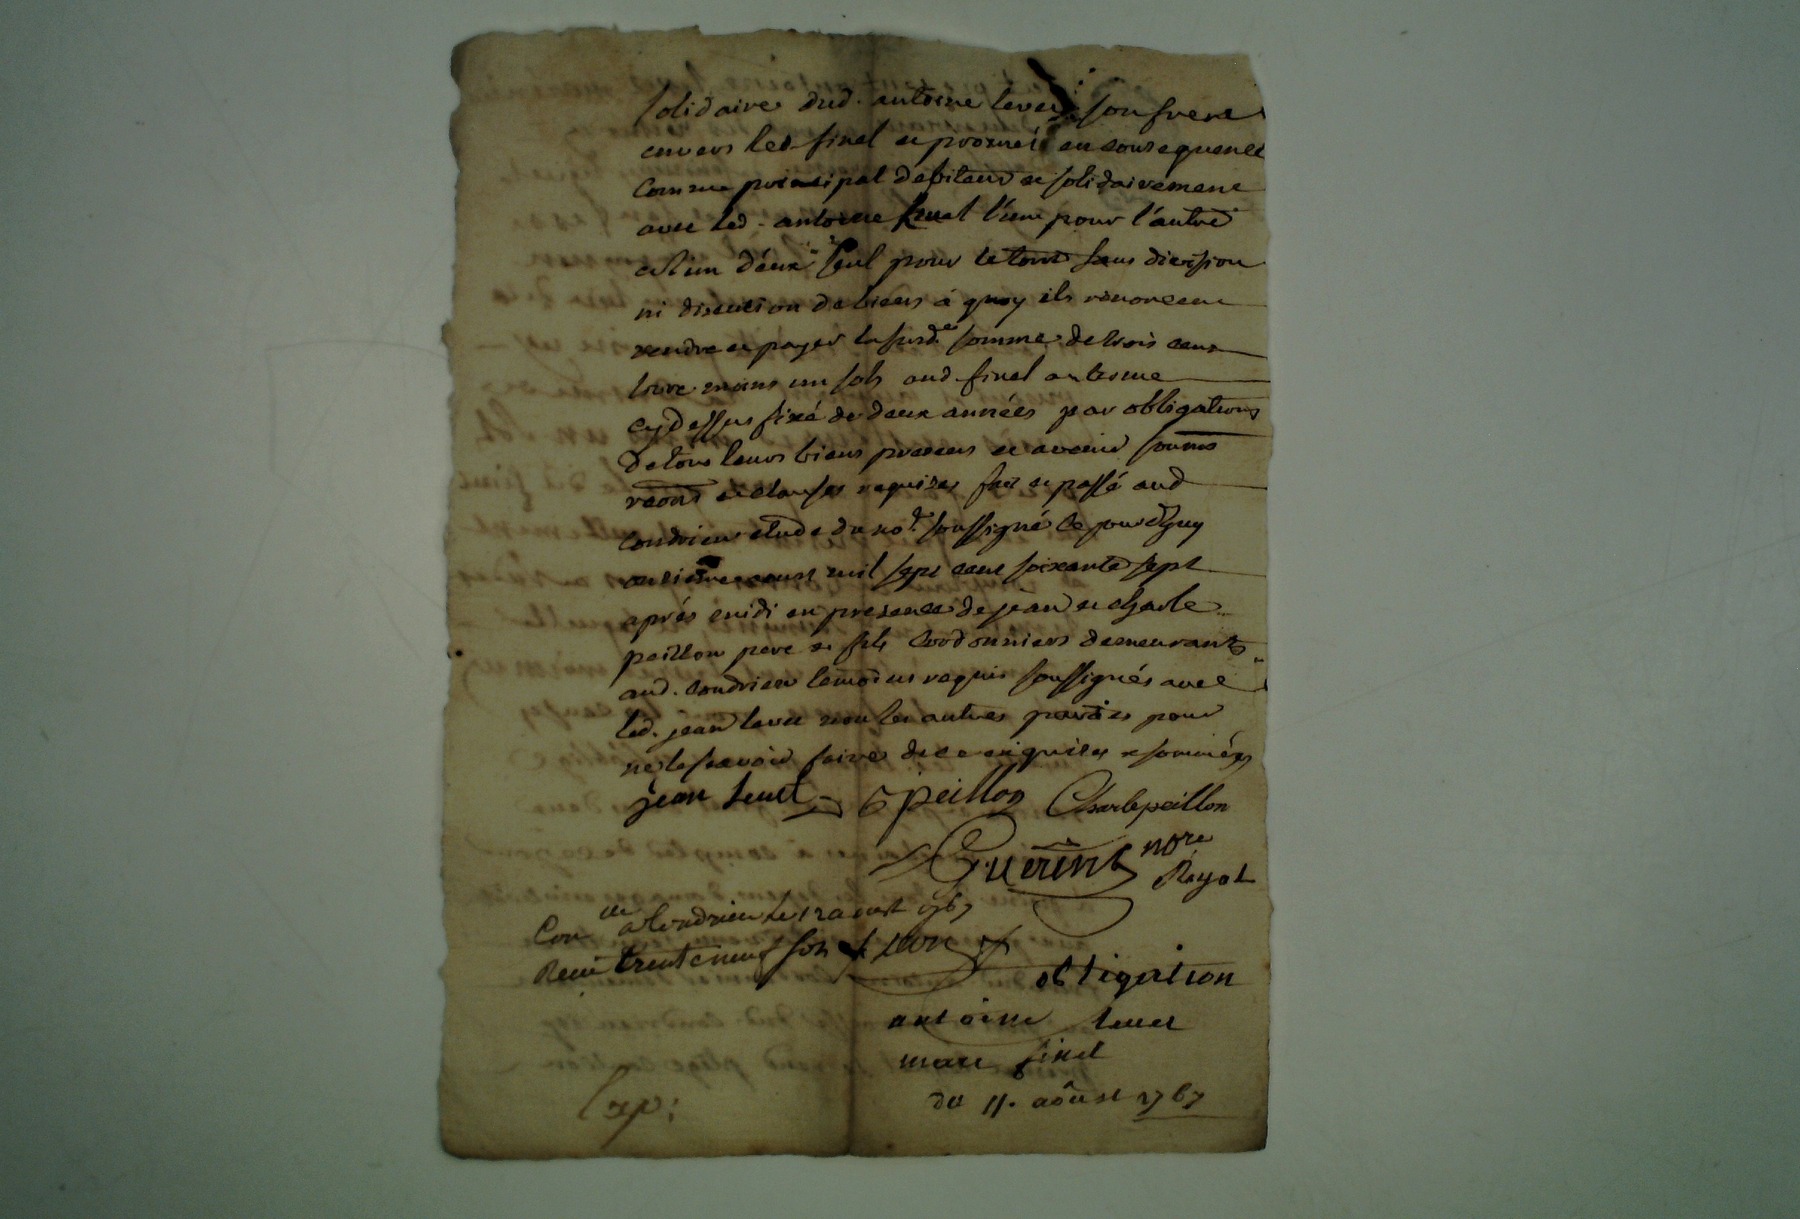 solidaire dud. antoine levet son frere
envers led. finel et promet en consequence
comme principal debiteur et solidairement
avec led. antoine levet l'un pour l'autre
et l'un d'eux seul pour le tout sans division
ni discution de biens à quoy ils renoncent
rendre et payer la susd.e somme de trois cent
livre moins un sols aud finel au terme
cy dessus fixé de deux années par obligations
de tous leurs biens presens et avenir soumis
renons et clauses requises fait et passé aud
Condrieu etude du no.re soussigné ce jourdhuy
onzieme aoust mil sept cent soixante sept
aprés midi en presence de jean et charle
peillon pere et fils Cordonniers demeurants
aud. Condrieu temoins requis soussignés avec
led. jean levet non les autres parties pour
ne le scavoir faire de ce enquises et sommées
jean levet peillon Charle peillon
Guerin nore
Royal
Con.lé a Condrieu le 12 aoust 1767
Receu trente neuf sols
obligation
antoine levet
marc finel
du 11. aôust 1767
Exp: